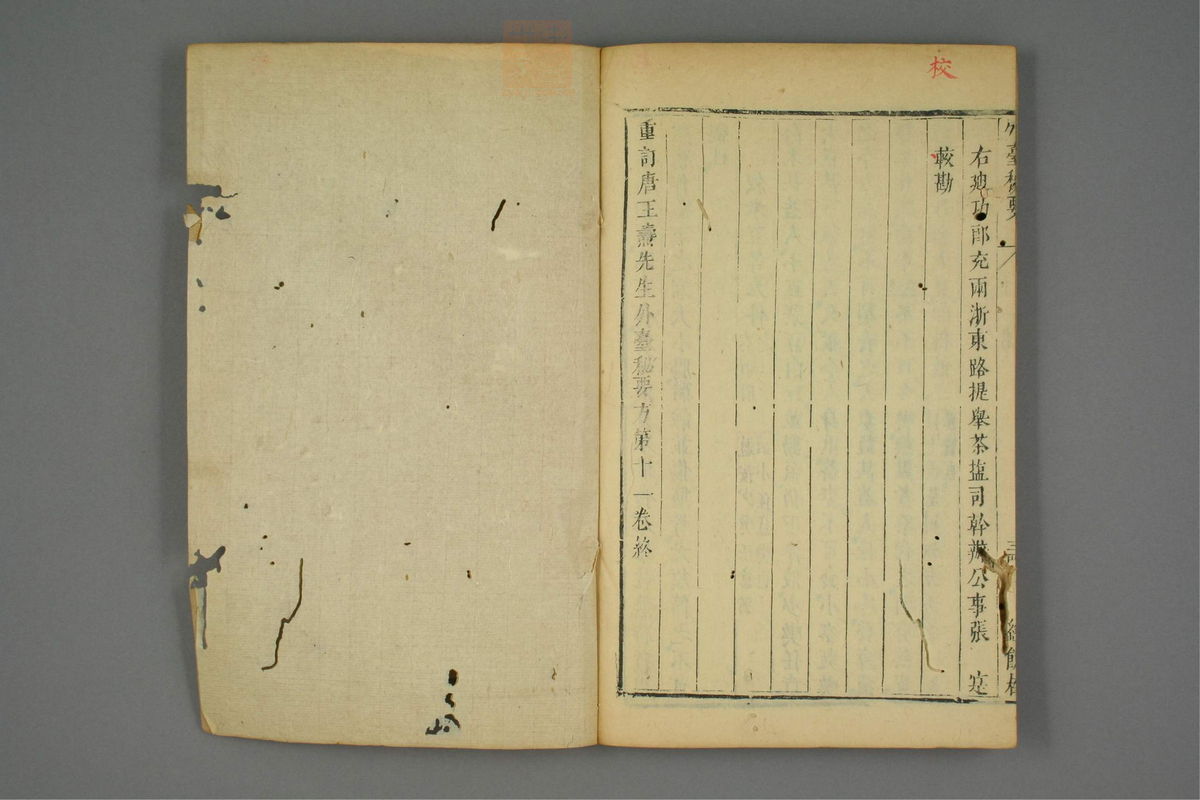 校
右廸功郎充兩浙東路提舉茶塩司幹辦公事張 寔
較勘
重訂唐王燾先生外臺秘要方第十一卷終